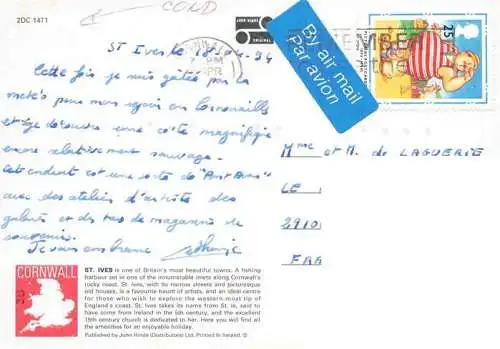 2DC 1471
COND
By air mail
Par avion
25
St Ives le 18.04.94
Cette fois je suis gâtée par la
météo pour mon séjour en Cornouailles
et je découvre une côte magnifique
encore relativement sauvage.
est une sorte de "Pont Aven"
avec des ateliers d'artiste des
galeries et des tas de magasins de
souvenirs.
Je vous embrasse
Mme et M. de LAGUERIE
LE
2910
FRA
CORNWALL
ST. IVES is one of Britain's most beautiful towns. A fishing
harbour set in one of the innumerable inlets along Cornwall's
rocky coast, St. Ives, with its narrow streets and picturesque
old houses, is a favourite haunt of artists, and an ideal centre
for those who wish to explore the western-most tip of
England's coast. St. Ives takes its name from St. Ia, said to
have come from Ireland in the 5th century, and the excellent
15th century church is dedicated to her. Here you will find all
the amenities for an enjoyable holiday.
Published by John Hinde (Distributors) Ltd. Printed in Ireland. ©